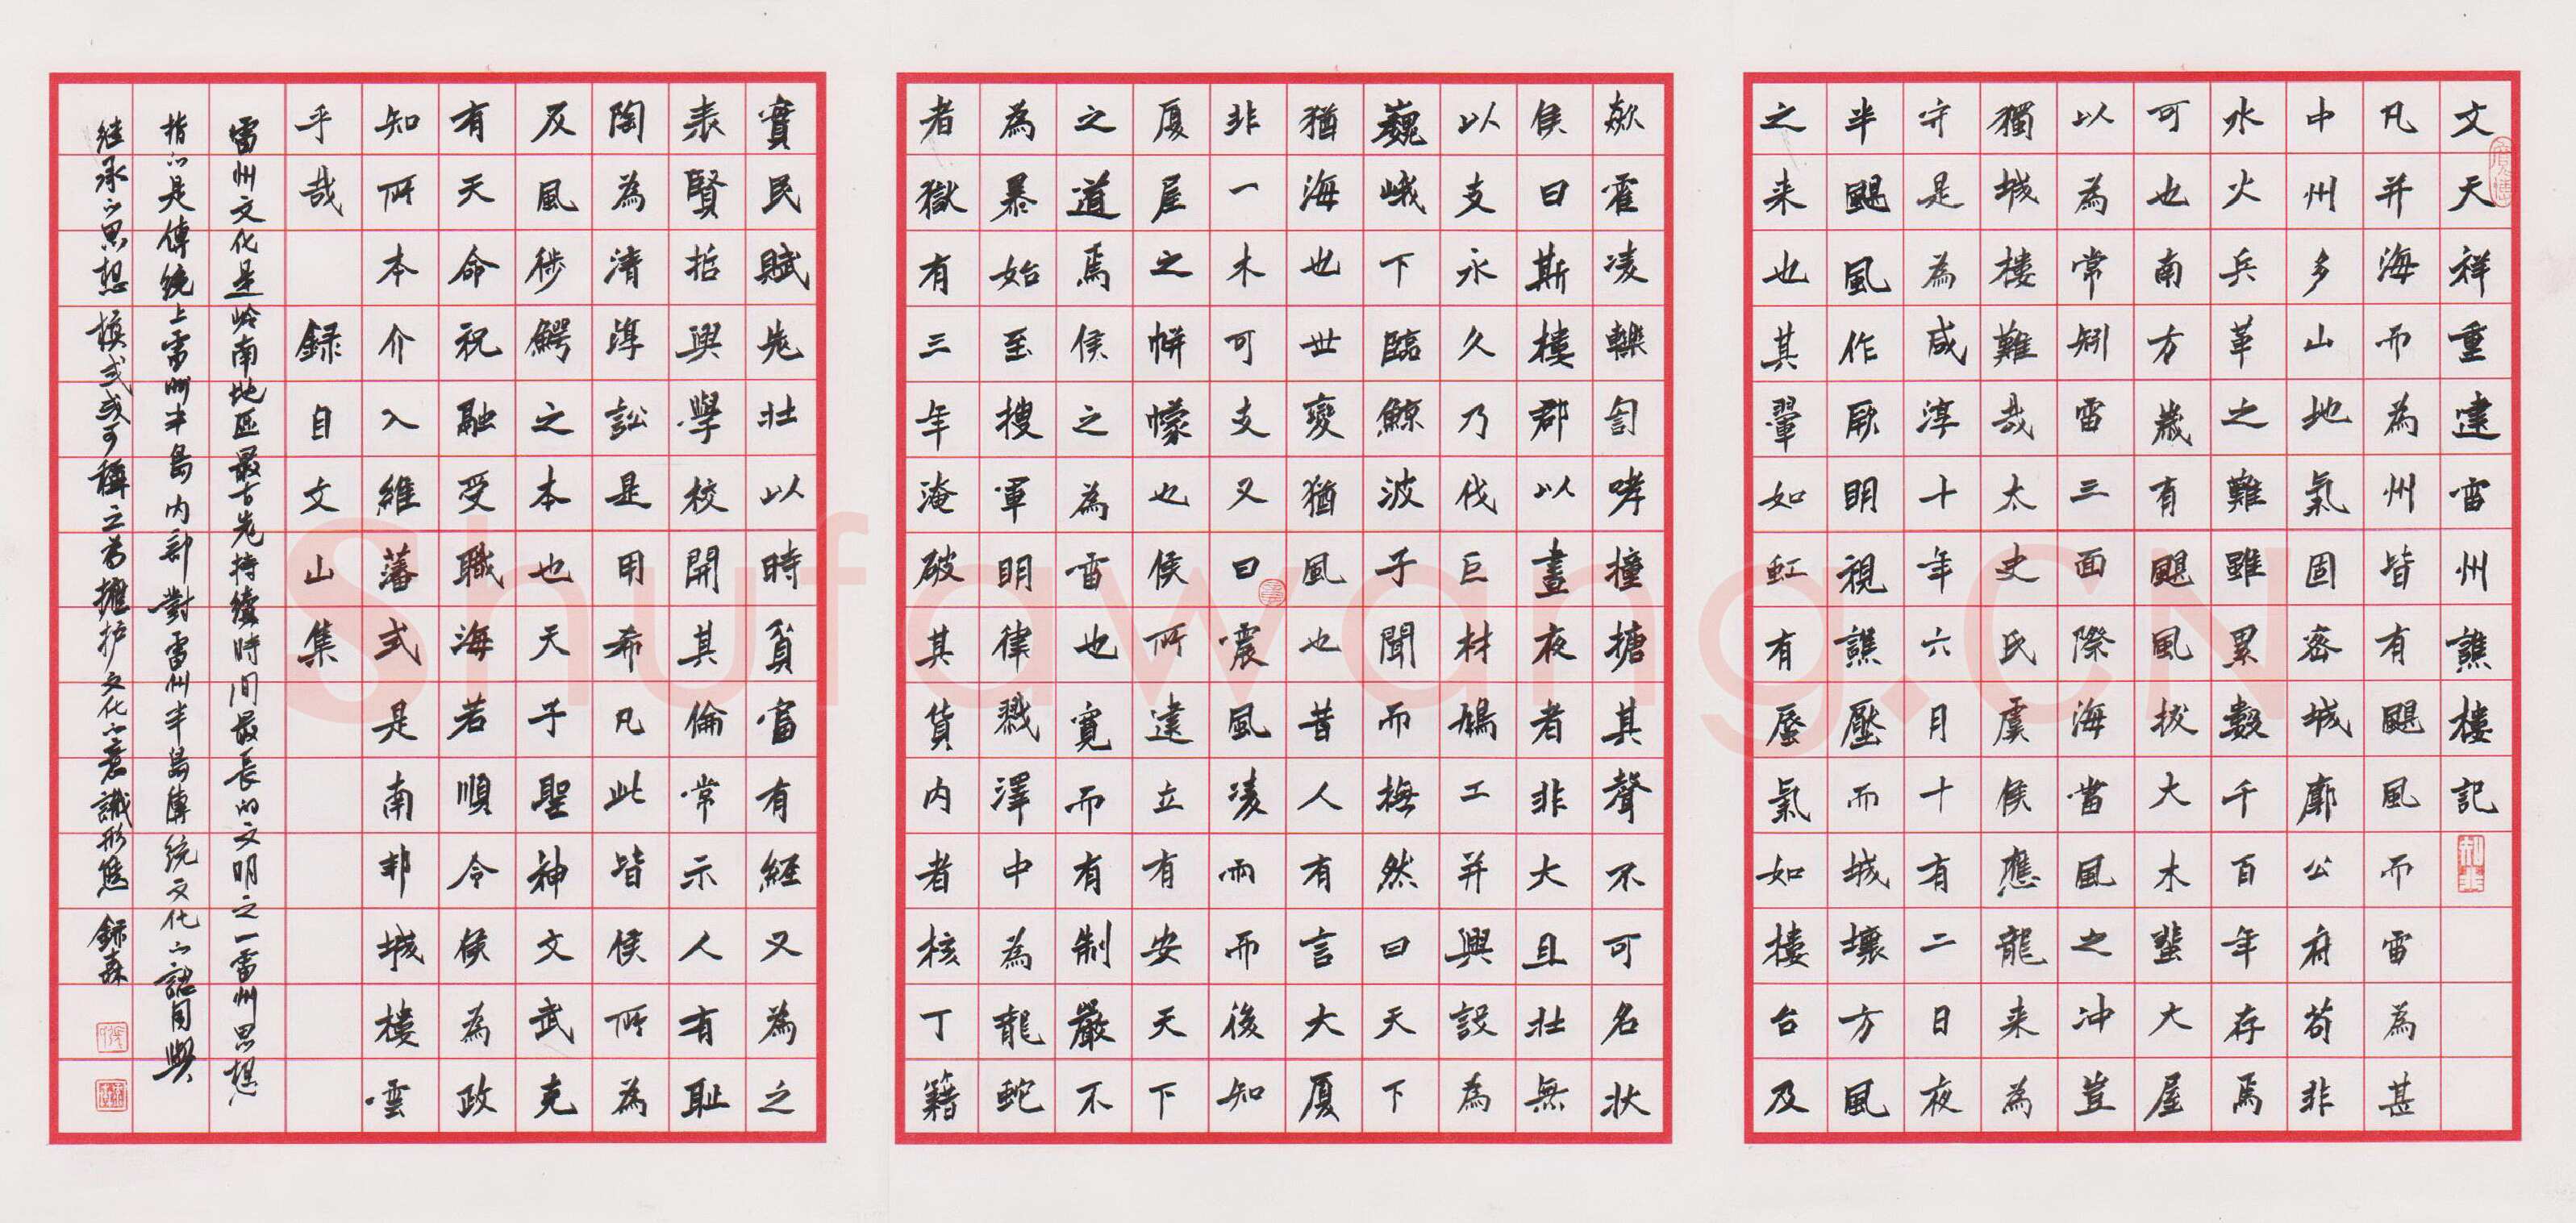 文天祥重建雷州譙樓記
凡并海而為州皆有颶風而雷為甚
中州多山地氣固密城廓公府苟非
水火兵革之難雖累數千百年存焉
可也南方歲有颶風拔大木蜚大屋
以為常矧雷三面際海當風之冲豈
獨城樓難哉太史氏虞侯應龍来為
守是為咸淳十年六月十有二日夜
半颶風作厥明視譙壓而城壞方風
之来也其翬如虹有蜃氣如樓台及
欻霍凌轢訇哮撞搪其聲不可名状
侯曰斯樓郡以晝夜者非大且壮無
以支永久乃伐巨材鳩工并興設為
巍峨下臨鯨波子聞而撫然曰天下
猶海也世變猶風也昔人有言大厦
非一木可支又曰震風凌雨而後知
厦屋之帡幪也侯所建立有安天下
之道焉侯之為雷也寬而有制嚴不
為暴始至搜軍明律戮澤中為龍蛇
者獄有三年淹破其貨内者核丁籍
實民賦先壮以時貧富有經又為之
表賢哲興學校開其倫常示人有耻
陶為清淳訟是用希凡此皆侯所為
及風徙鰐之本也天子聖神文武克
有天命祝融受職海若順令侯為政
知所本介入維藩式是南邦城樓雲
乎哉 録自文山集
雷州文化是岭南地區最古老持續時间最長的文明之一雷州思想
指的是傳統上雷州半島内部對雷州半島傳統文化的認同與
继承的思想模式或可稱之為擁护文化的意識形態 録森
Shufawang.CN